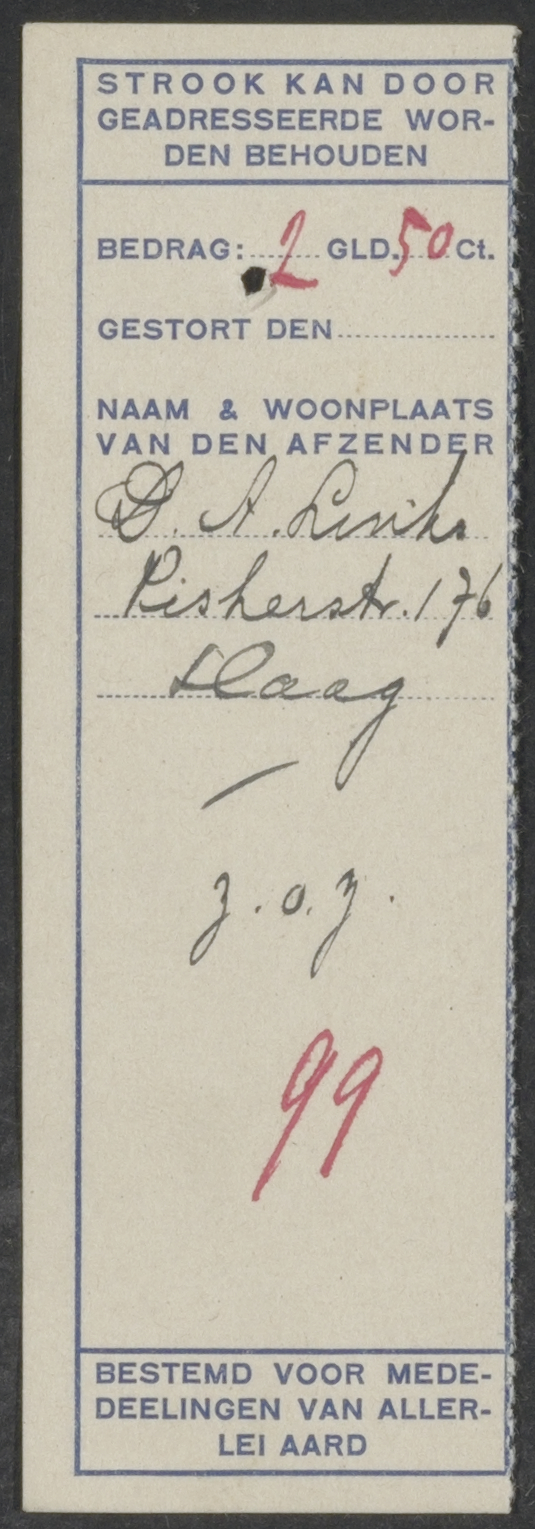 STROOK KAN DOOR
GEADRESSEERDE WOR-
DEN BEHOUDEN
BEDRAG: 2 GLD. 50 Ct.
GESTORT DEN
NAAM & WOONPLAATS
VAN DEN AFZENDER
D. A.
176
Haag
z.o.z.
99
BESTEMD VOOR MEDE-
DEELINGEN VAN ALLER-
LEI AARD